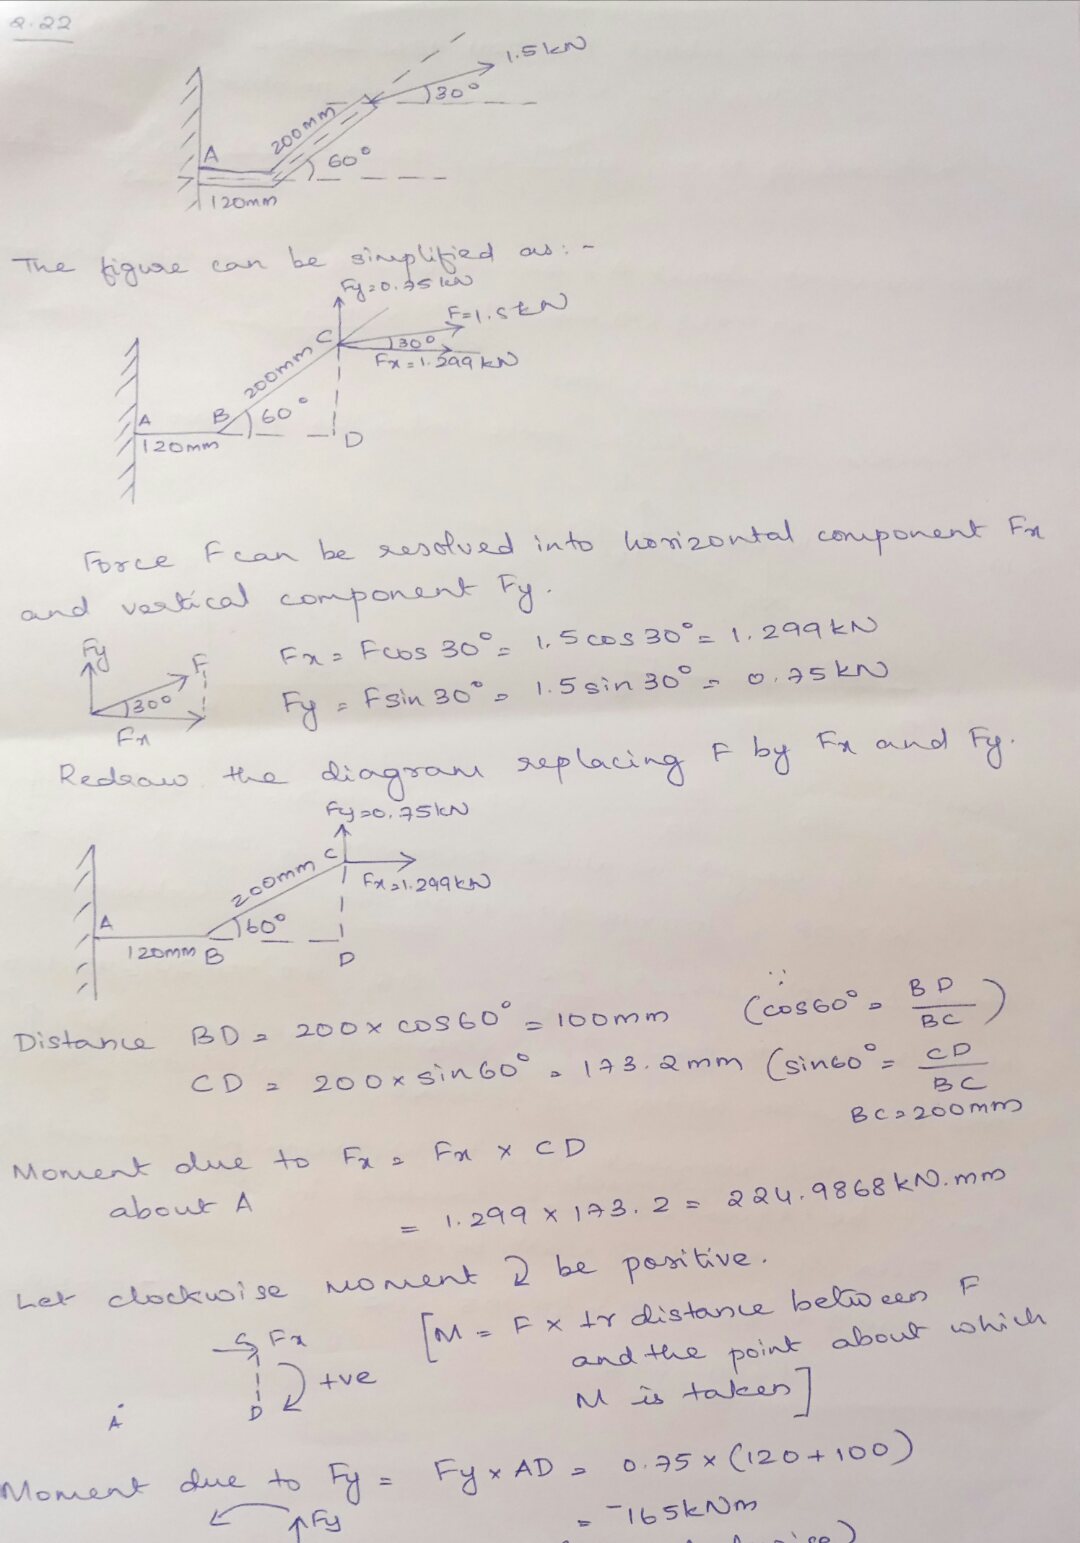 2.22
1.5kN
30°
200mm
A
60°
120mm
The figure can be simplified as:-
Fy=0.75kN
F=1.5kN
C
30°
Fx=1.299kN
200mm
A
B
60°
120mm
D
Force F can be resolved into horizontal component Fx
and vertical component Fy.
Fy
F
Fx = Fcos 30° = 1.5 cos 30° = 1.299kN
30°
Fy = F sin 30° = 1.5 sin 30° = 0.75kN
Fx
Redraw the diagram replacing F by Fx and Fy.
Fy=0.75kN
C
200mm
Fx=1.299kN
A
60°
120mm B
D
Distance BD = 200 x cos60° = 100mm (∵ cos60° = BD/BC)
CD = 200 x sin60° = 173.2mm (sin60° = CD/BC
BC=200mm
Moment due to Fx = Fx x CD
about A
= 1.299 x 173.2 = 224.9868kN.mm
Let clockwise moment ↻ be positive.
C Fx
[M = F x ⊥r distance between F
and the point about which
+ve
M is taken]
A
D
Moment due to Fy = Fy x AD = 0.75 x (120+100)
Fy
= -165kNm